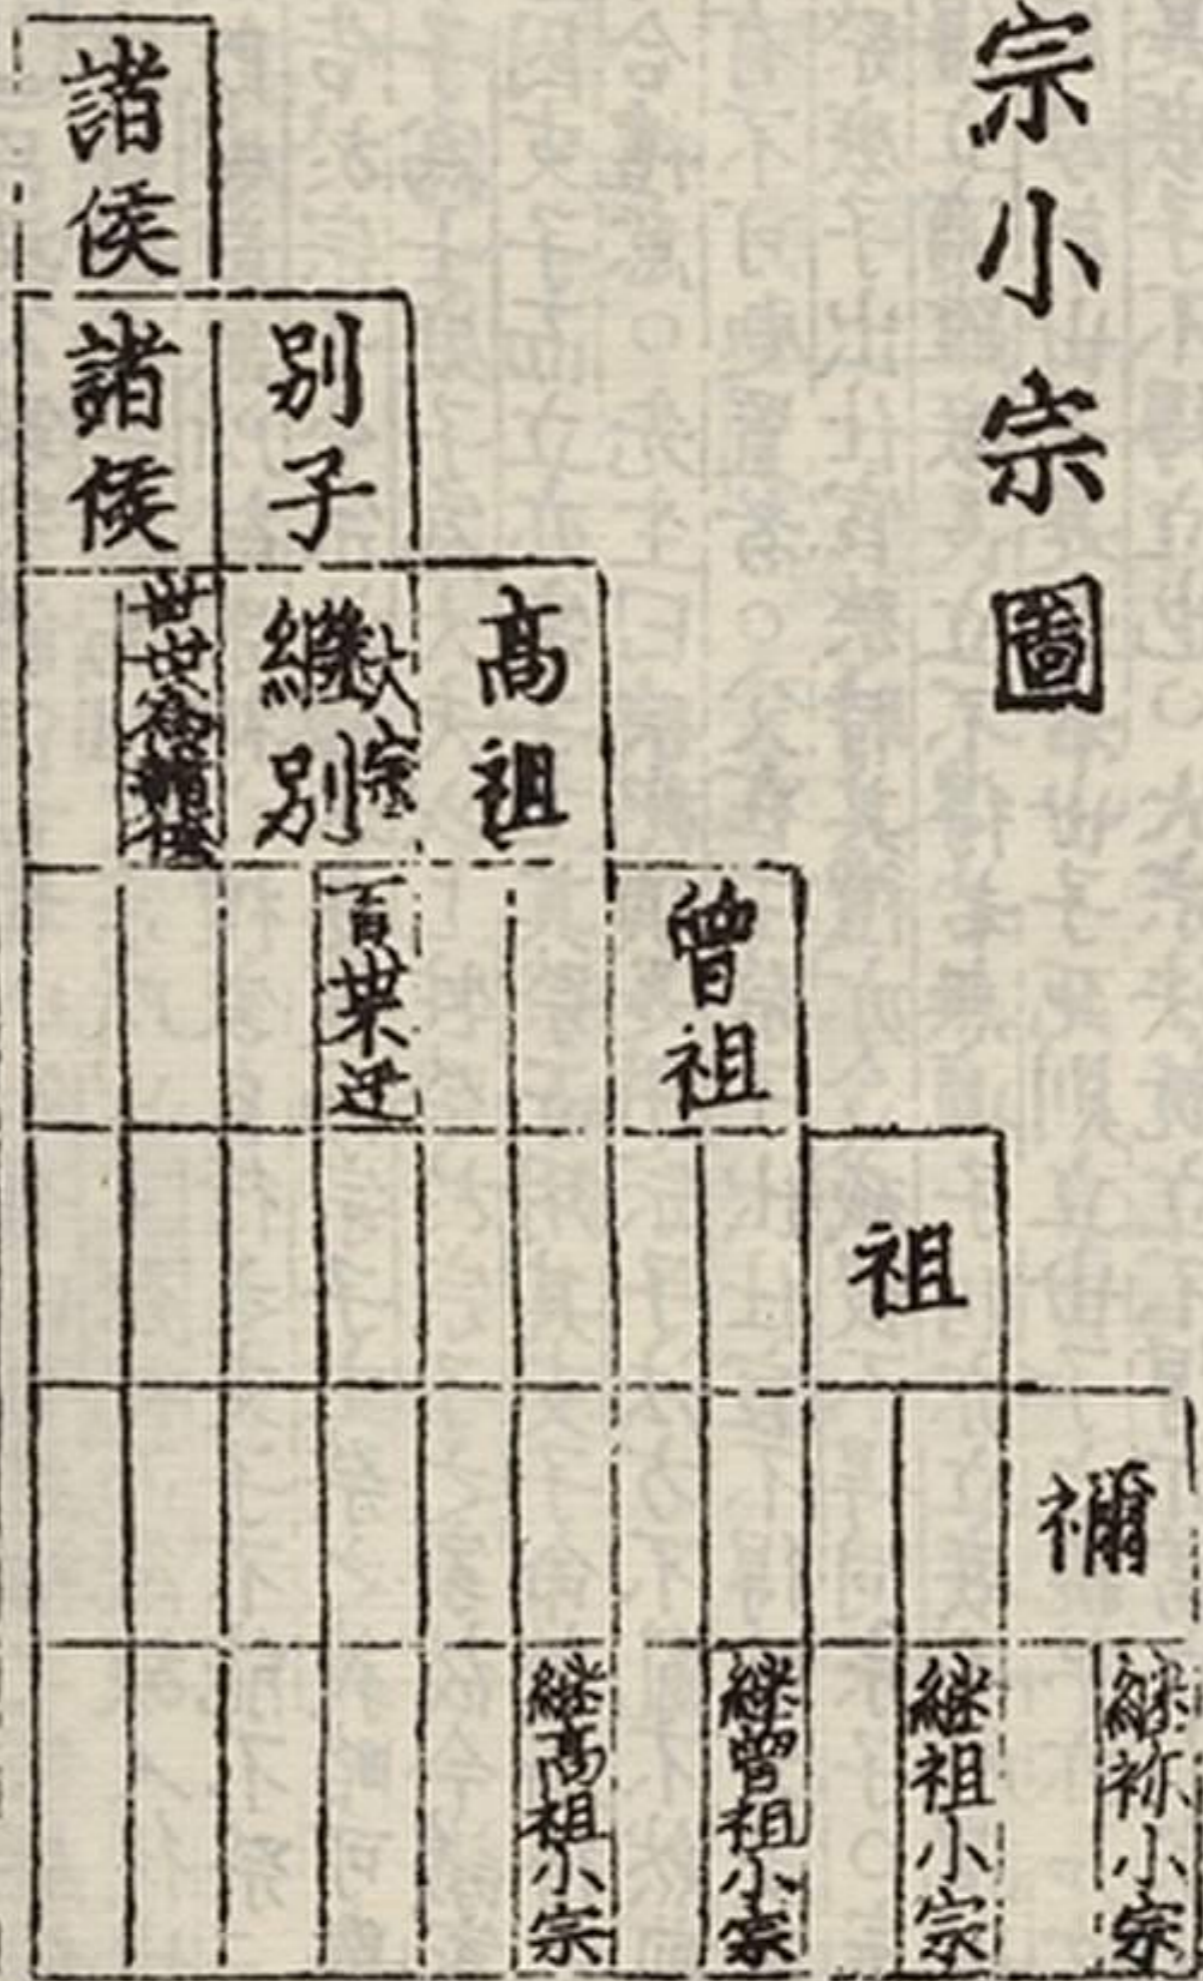 宗小宗圖
諸侯
諸侯
別子
世世為諸侯
繼別
大宗
高祖
百世不迁
曾祖
祖
禰
繼高祖小宗
繼曾祖小宗
継祖小宗
継祢小宗